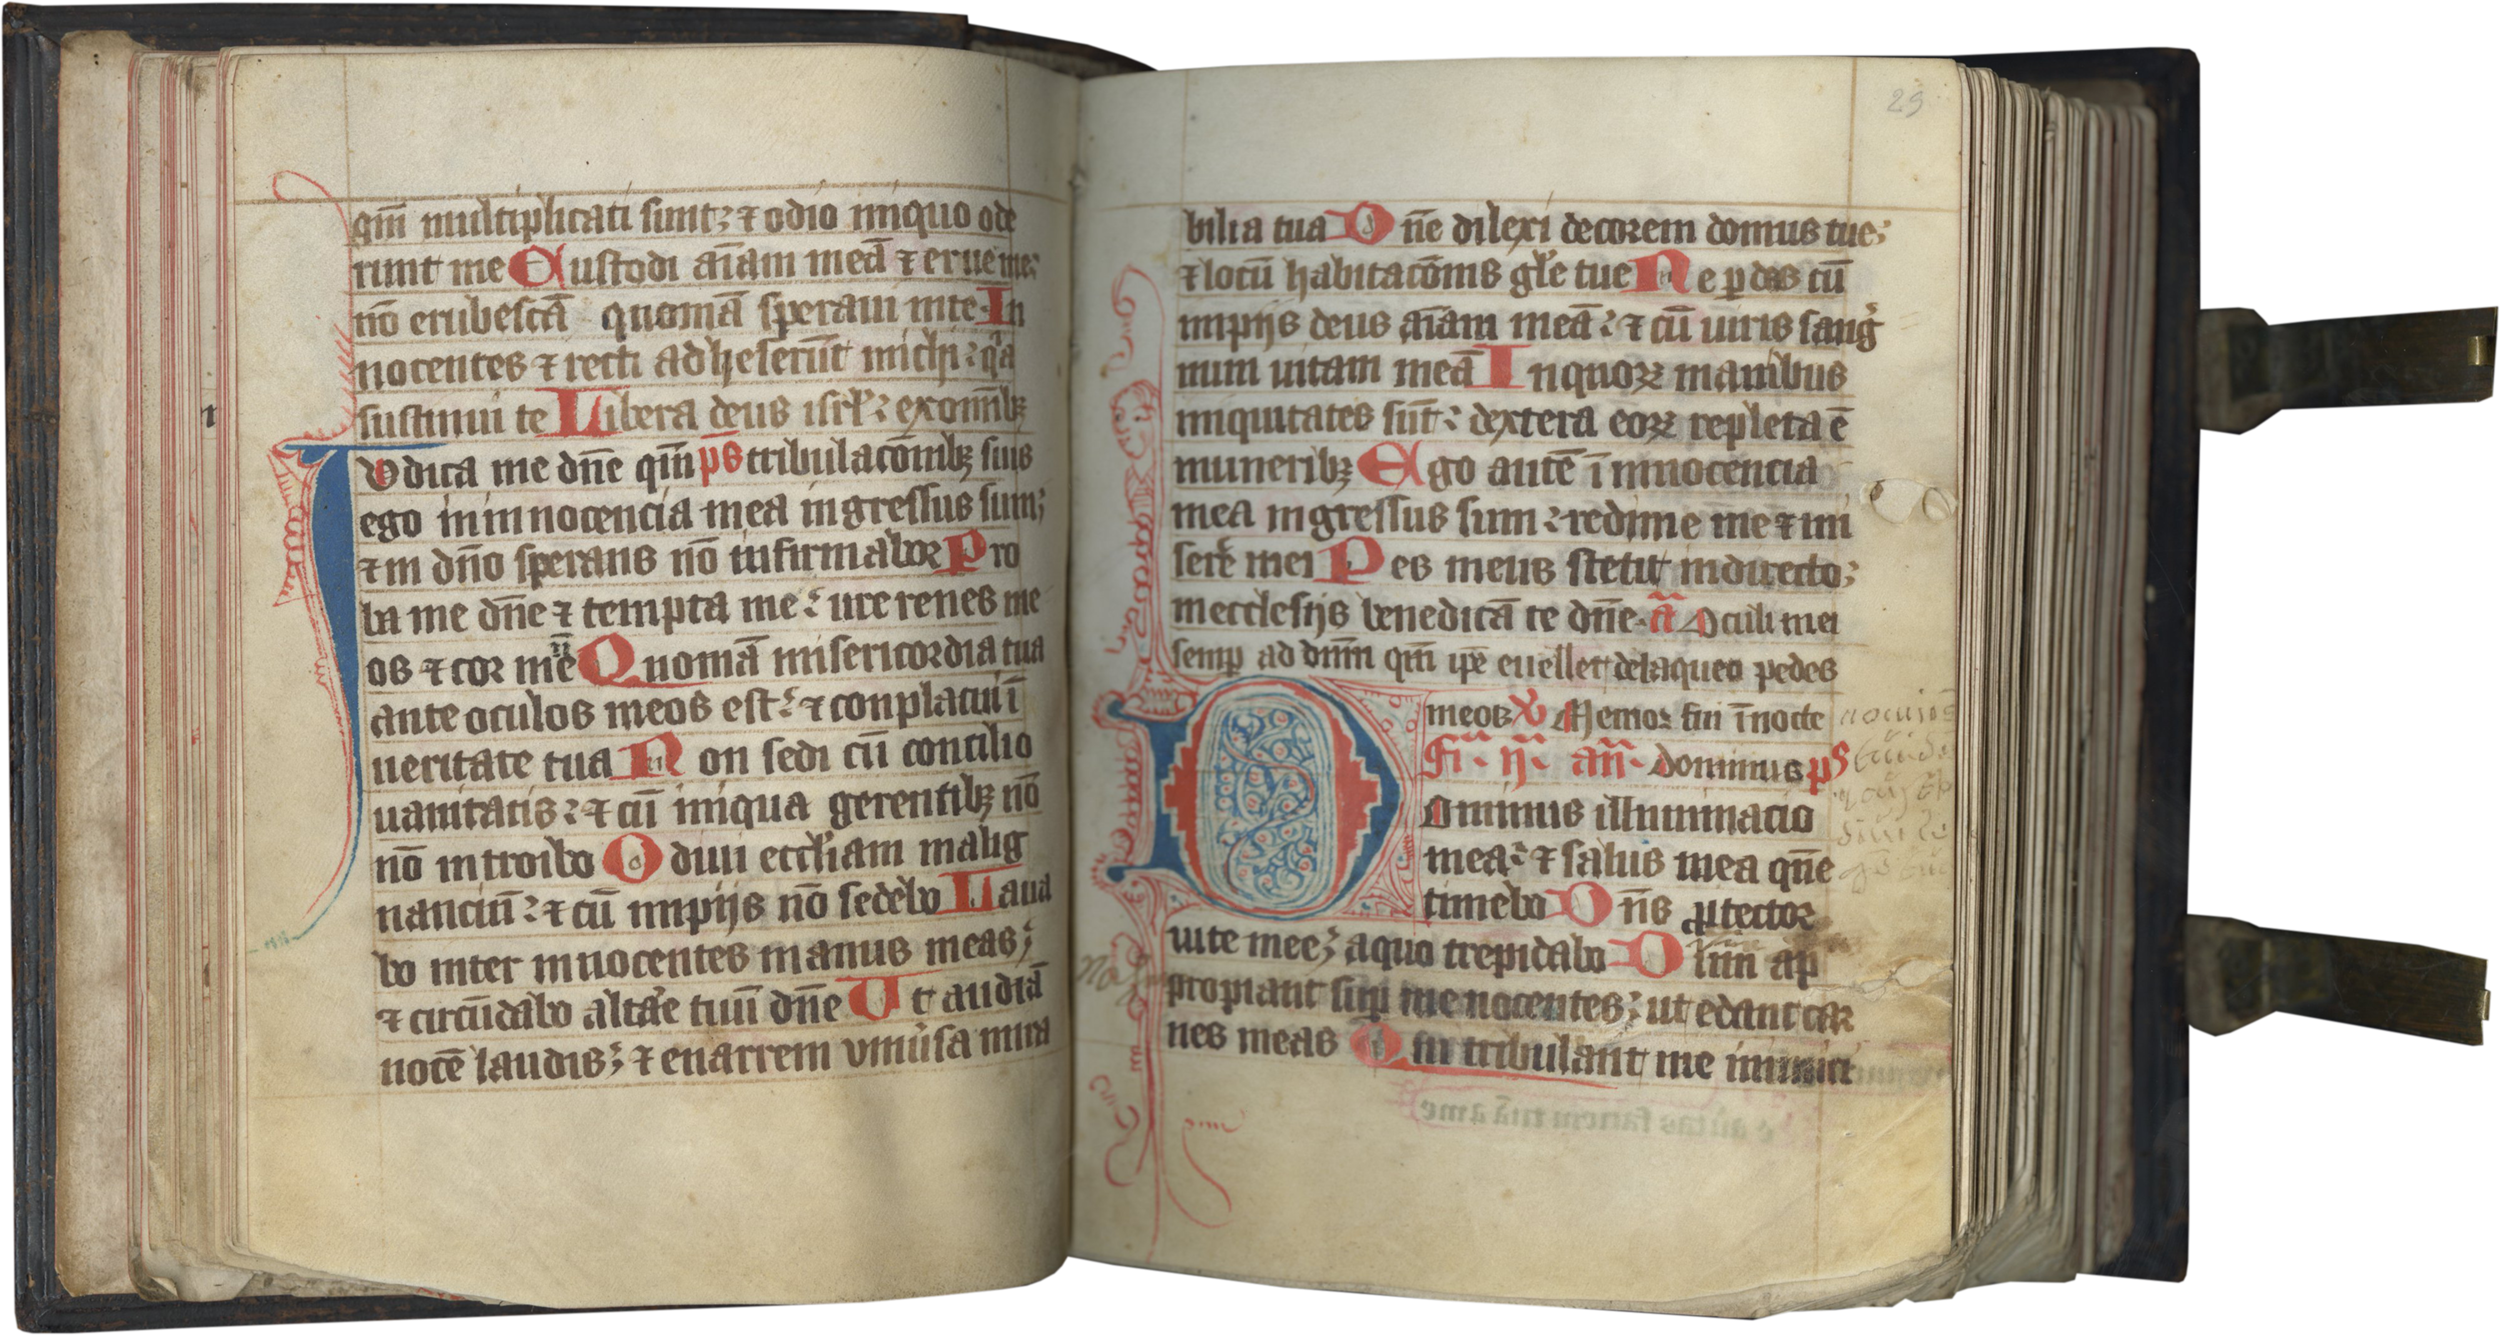 qm̄ multiplicati sunt; ⁊ odio iniquo ode
runt me Custodi aīam meā ⁊ erue me;
nō erubescā quoniā speraui inte. In
nocentes ⁊ recti adheserūt michi: qͣa
sustinui te Libera deus isrl̄: exomībꝫ
Judica me dn̄e qm̄ ps tribulacōnibꝫ suis
ego in innocencia mea ingressus sum;
⁊ in dn̄o sperans nō infirmabor Pro
ba me dn̄e ⁊ tempta me: ure renes me
os ⁊ cor mēū Quoniā misericordia tua
ante oculos meos est: ⁊ conplacui ī
ueritate tua Non sedi cū concilio
uanitatis: ⁊ cū iniqua gerentibꝫ nō
nō introibo Odiui eccl̄iam malig
nanciū: ⁊ cū impijs nō sedebo Laua
bo inter innocentes manus meas;
⁊ circūdabo altāre tuū dn̄e Ut audiā
uocē laudis; ⁊ enarrem uniūsa mira
29
bilia tua Dn̄e dilexi decorem domus tue;
⁊ locū habitacōnis glē tue Ne ꝑdas cū
impijs deus aīam meā: ⁊ cū uiris sangͥ
num uitam meā In quoꝝ manibus
iniquitates sūt: dextera eoꝝ repleta ē
muneribꝫ Ego autē ī innocencia
mea ingressus sum: redime me ⁊ mi
serē mei Pes meus stetit indirecto;
inecclesijs benedicā te dn̄e. ā Oculi mei
semꝑ ad dnm̄ qm̄ ip̄e euellet delaqueo pedes
meos ℣ Memor fui ī nocte
Fr̄. ij. an̄. dominus ps
Dominus illuminacio
mea: ⁊ salus mea qn̄e
timebo Dn̄s ꝓtector
uite mee; aquo trepidabo Dum ap
propiant suꝑ me nocentes; ut edant car
nes meas Qui tribulant me inimici